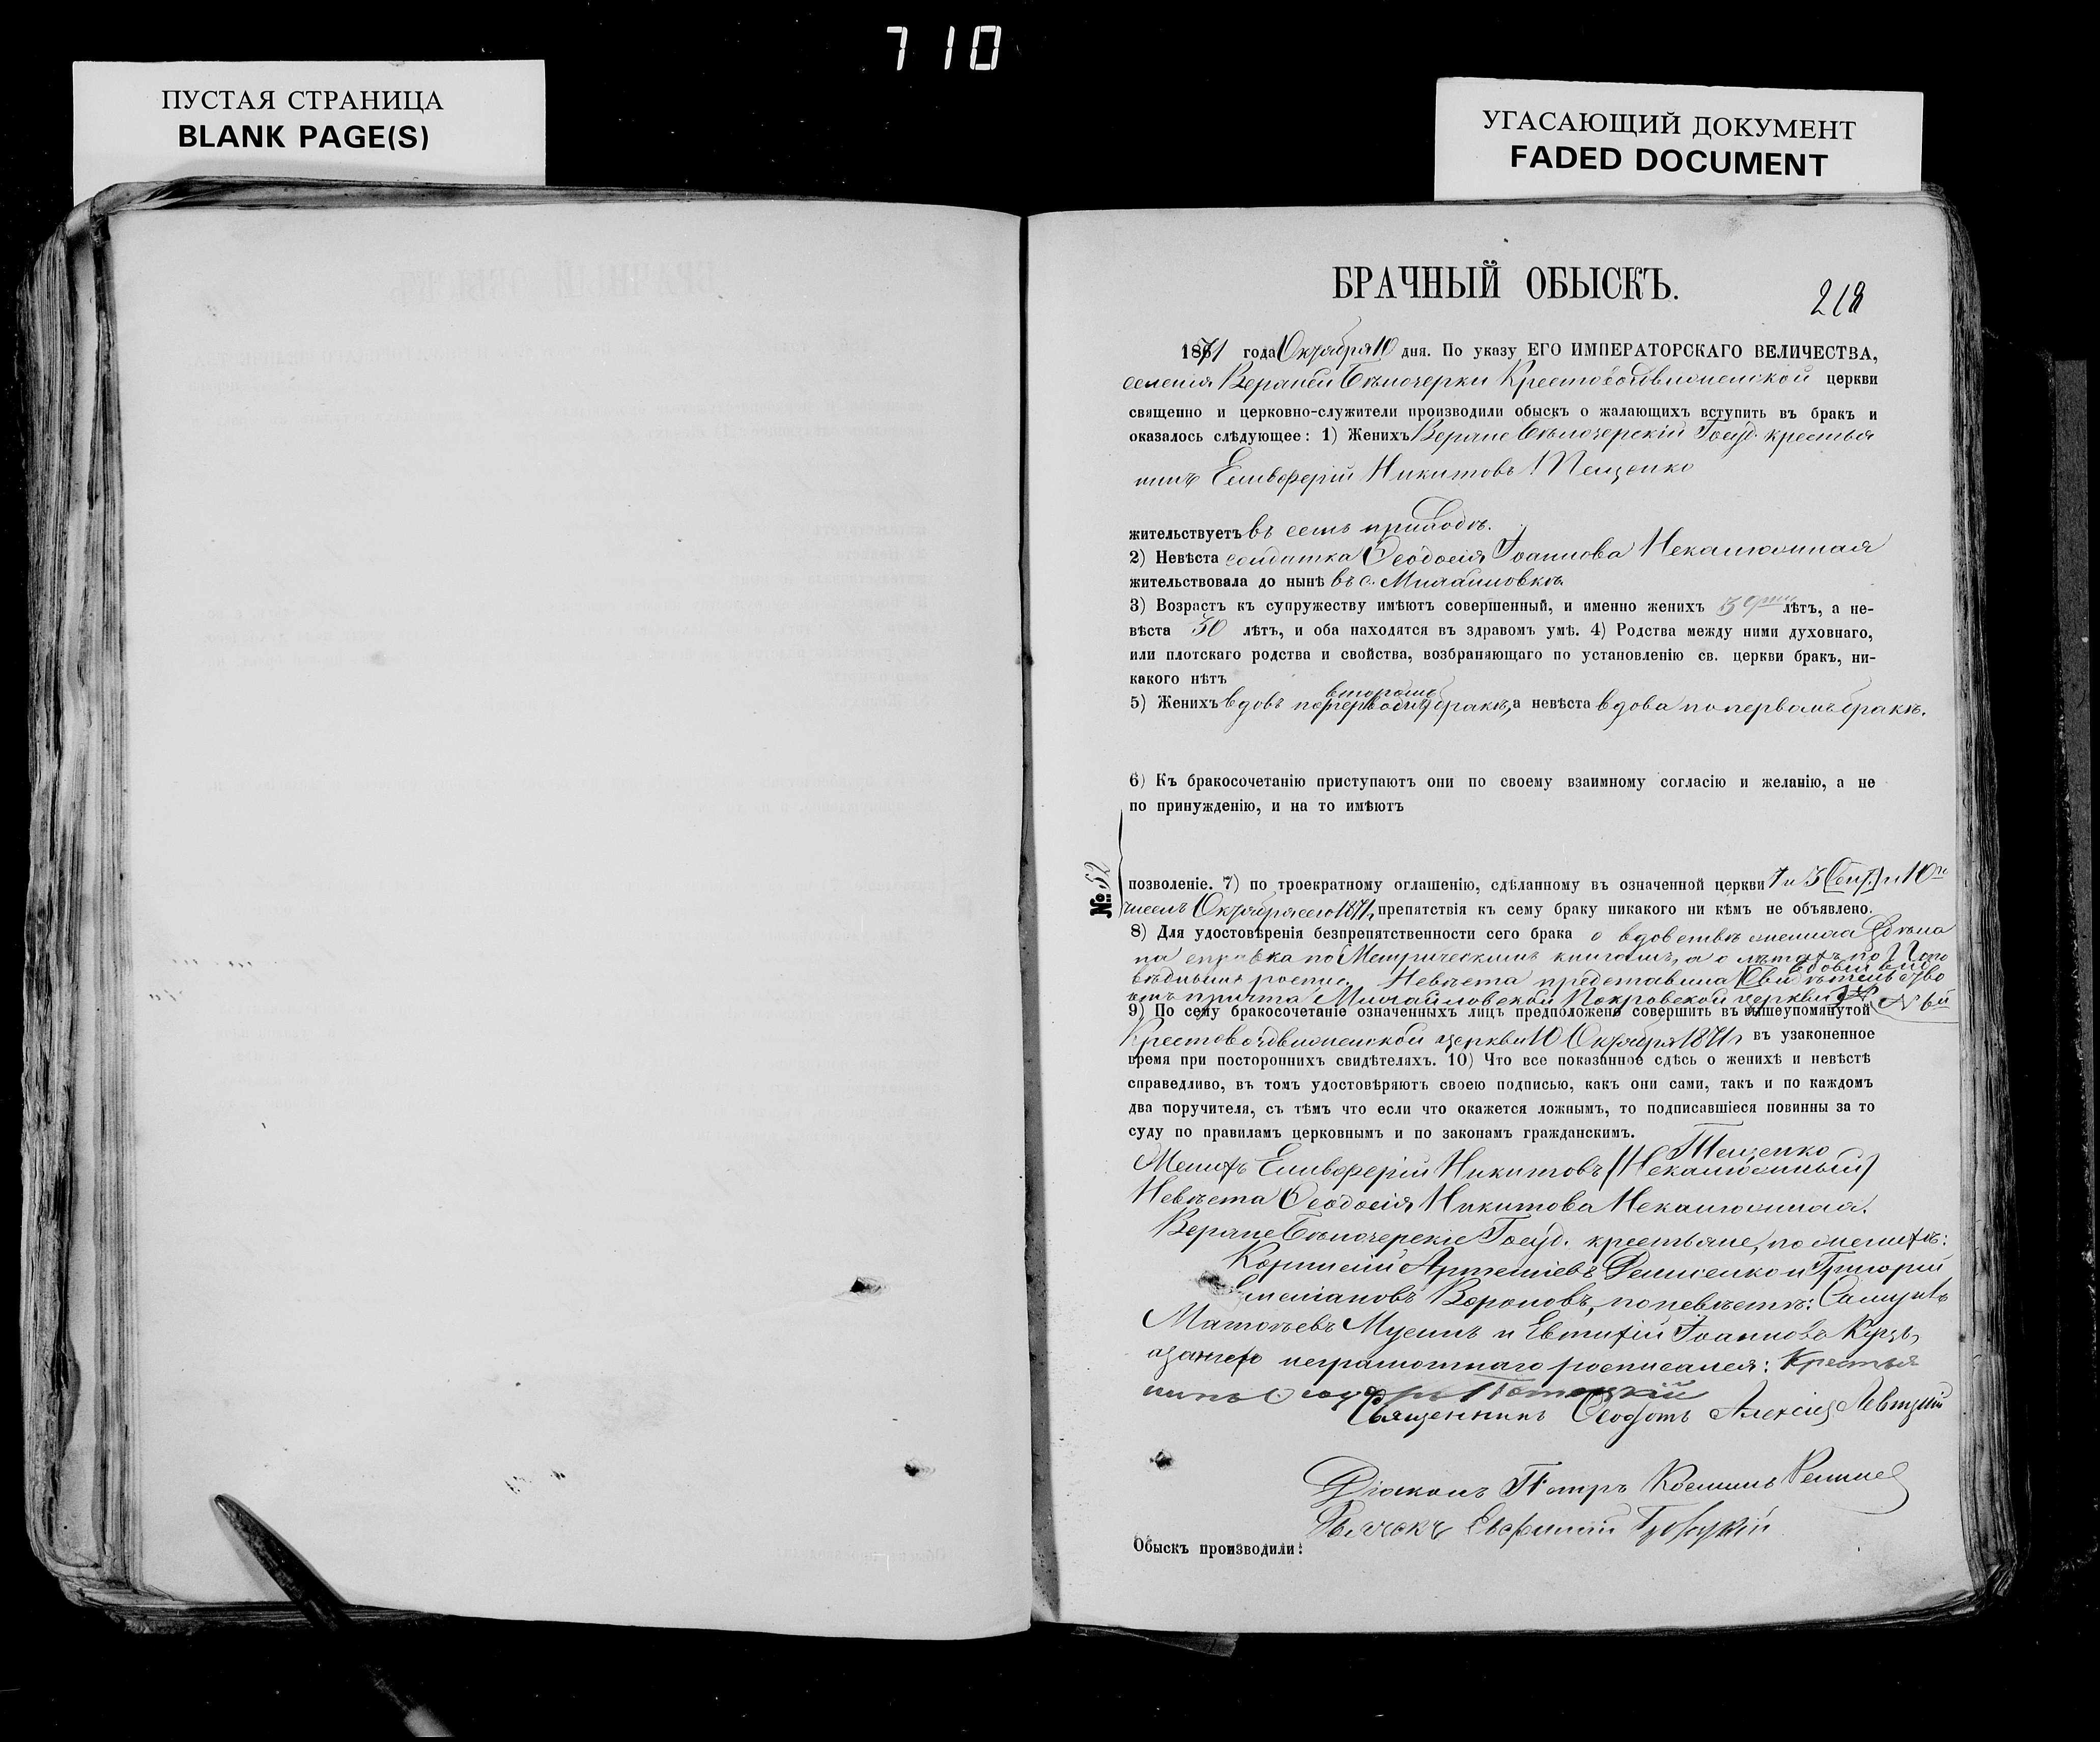 710
ПУСТАЯ СТРАНИЦА
BLANK PAGE(S)
УГАСАЮЩИЙ ДОКУМЕНТ
FADED DOCUMENT
БРАЧНЫЙ ОБЫСКЪ.
218
1871 года Октября 10 дня. По указу ЕГО ИМПЕРАТОРСКАГО ВЕЛИЧЕСТВА,
селенія Верхней Бѣлозерки Крестовоздвиженской церкви
священно и церковно-служители производили обыскъ о жалающихъ вступить въ бракъ и
оказалось слѣдующее: 1) Женихъ Верхне Бѣлозерскій Госуд. крестья
нинъ Елевферій Никитовъ Тещенко
жительствуетъ въ семъ приходѣ.
2) Невѣста солдатка Ѳеодосія Іоаннова Некалюжная
жительствовала до нынѣ въ с. Михайловкѣ
3) Возрастъ къ супружеству имѣютъ совершенный, и именно женихъ лѣтъ, а не-
вѣста 30 лѣтъ, и оба находятся въ здравомъ умѣ. 4) Родства между ними духовнаго,
или плотскаго родства и свойства, возбраняющаго по установленію св. церкви бракъ, ни-
какого нѣтъ
второмъ
5) Женихъ вдовъ по первомъ бракѣ, а невѣста вдова по первомъ бракѣ.
6) Къ бракосочетанію приступаютъ они по своему взаимному согласію и желанію, а не
по принужденію, и на то имѣютъ
№ 52
позволеніе. 7) по троекратному оглашенію, сдѣланному въ означенной церкви и 10
числъ Октября сего 1871 г. препятствія къ сему браку никакого ни кѣмъ не объявлено.
8) Для удостовѣренія безпрепятственности сего брака о вдовствѣ жениха сдѣлана
справка по Метрическимъ книгамъ, а о лѣтахъ по Испо
вѣднымъ роспис. Невѣста представила свидѣтельство
отъ причта Михайловской Покровской церкви
9) По сему бракосочетаніе означенныхъ лицъ предположено совершить въ вышеупомянутой
Крестовоздвиженской церкви 10 Октября 1871 г. въ узаконенное
время при постороннихъ свидѣтеляхъ. 10) Что все показанное сдѣсь о женихѣ и невѣстѣ
справедливо, въ томъ удостовѣряютъ своею подписью, какъ они сами, такъ и по каждомъ
два поручителя, съ тѣмъ что если что окажется ложнымъ, то подписавшіеся повинны за то
суду по правиламъ церковнымъ и по законамъ гражданскимъ.
Тещенко
Женихъ Елевферій Никитовъ (Некалюжный)
Невѣста Ѳеодосія Никитова Некалюжная.
Верхне Бѣлозерскіе Госуд. крестьяне, по женихѣ:
Корнилій Артеміевъ Денисенко и Григорій
Емеліановъ Вороновъ, по невѣстѣ: Самуилъ
Матвѣевъ Мусинъ и Евтихій Іоанновъ
а за нихъ неграмотнаго росписался: Крестья
нинъ
Священникъ Ѳеодотъ Алексіевъ Левицкій
Діаконъ Петръ
Дьячокъ Евфимій
Обыскъ производили: